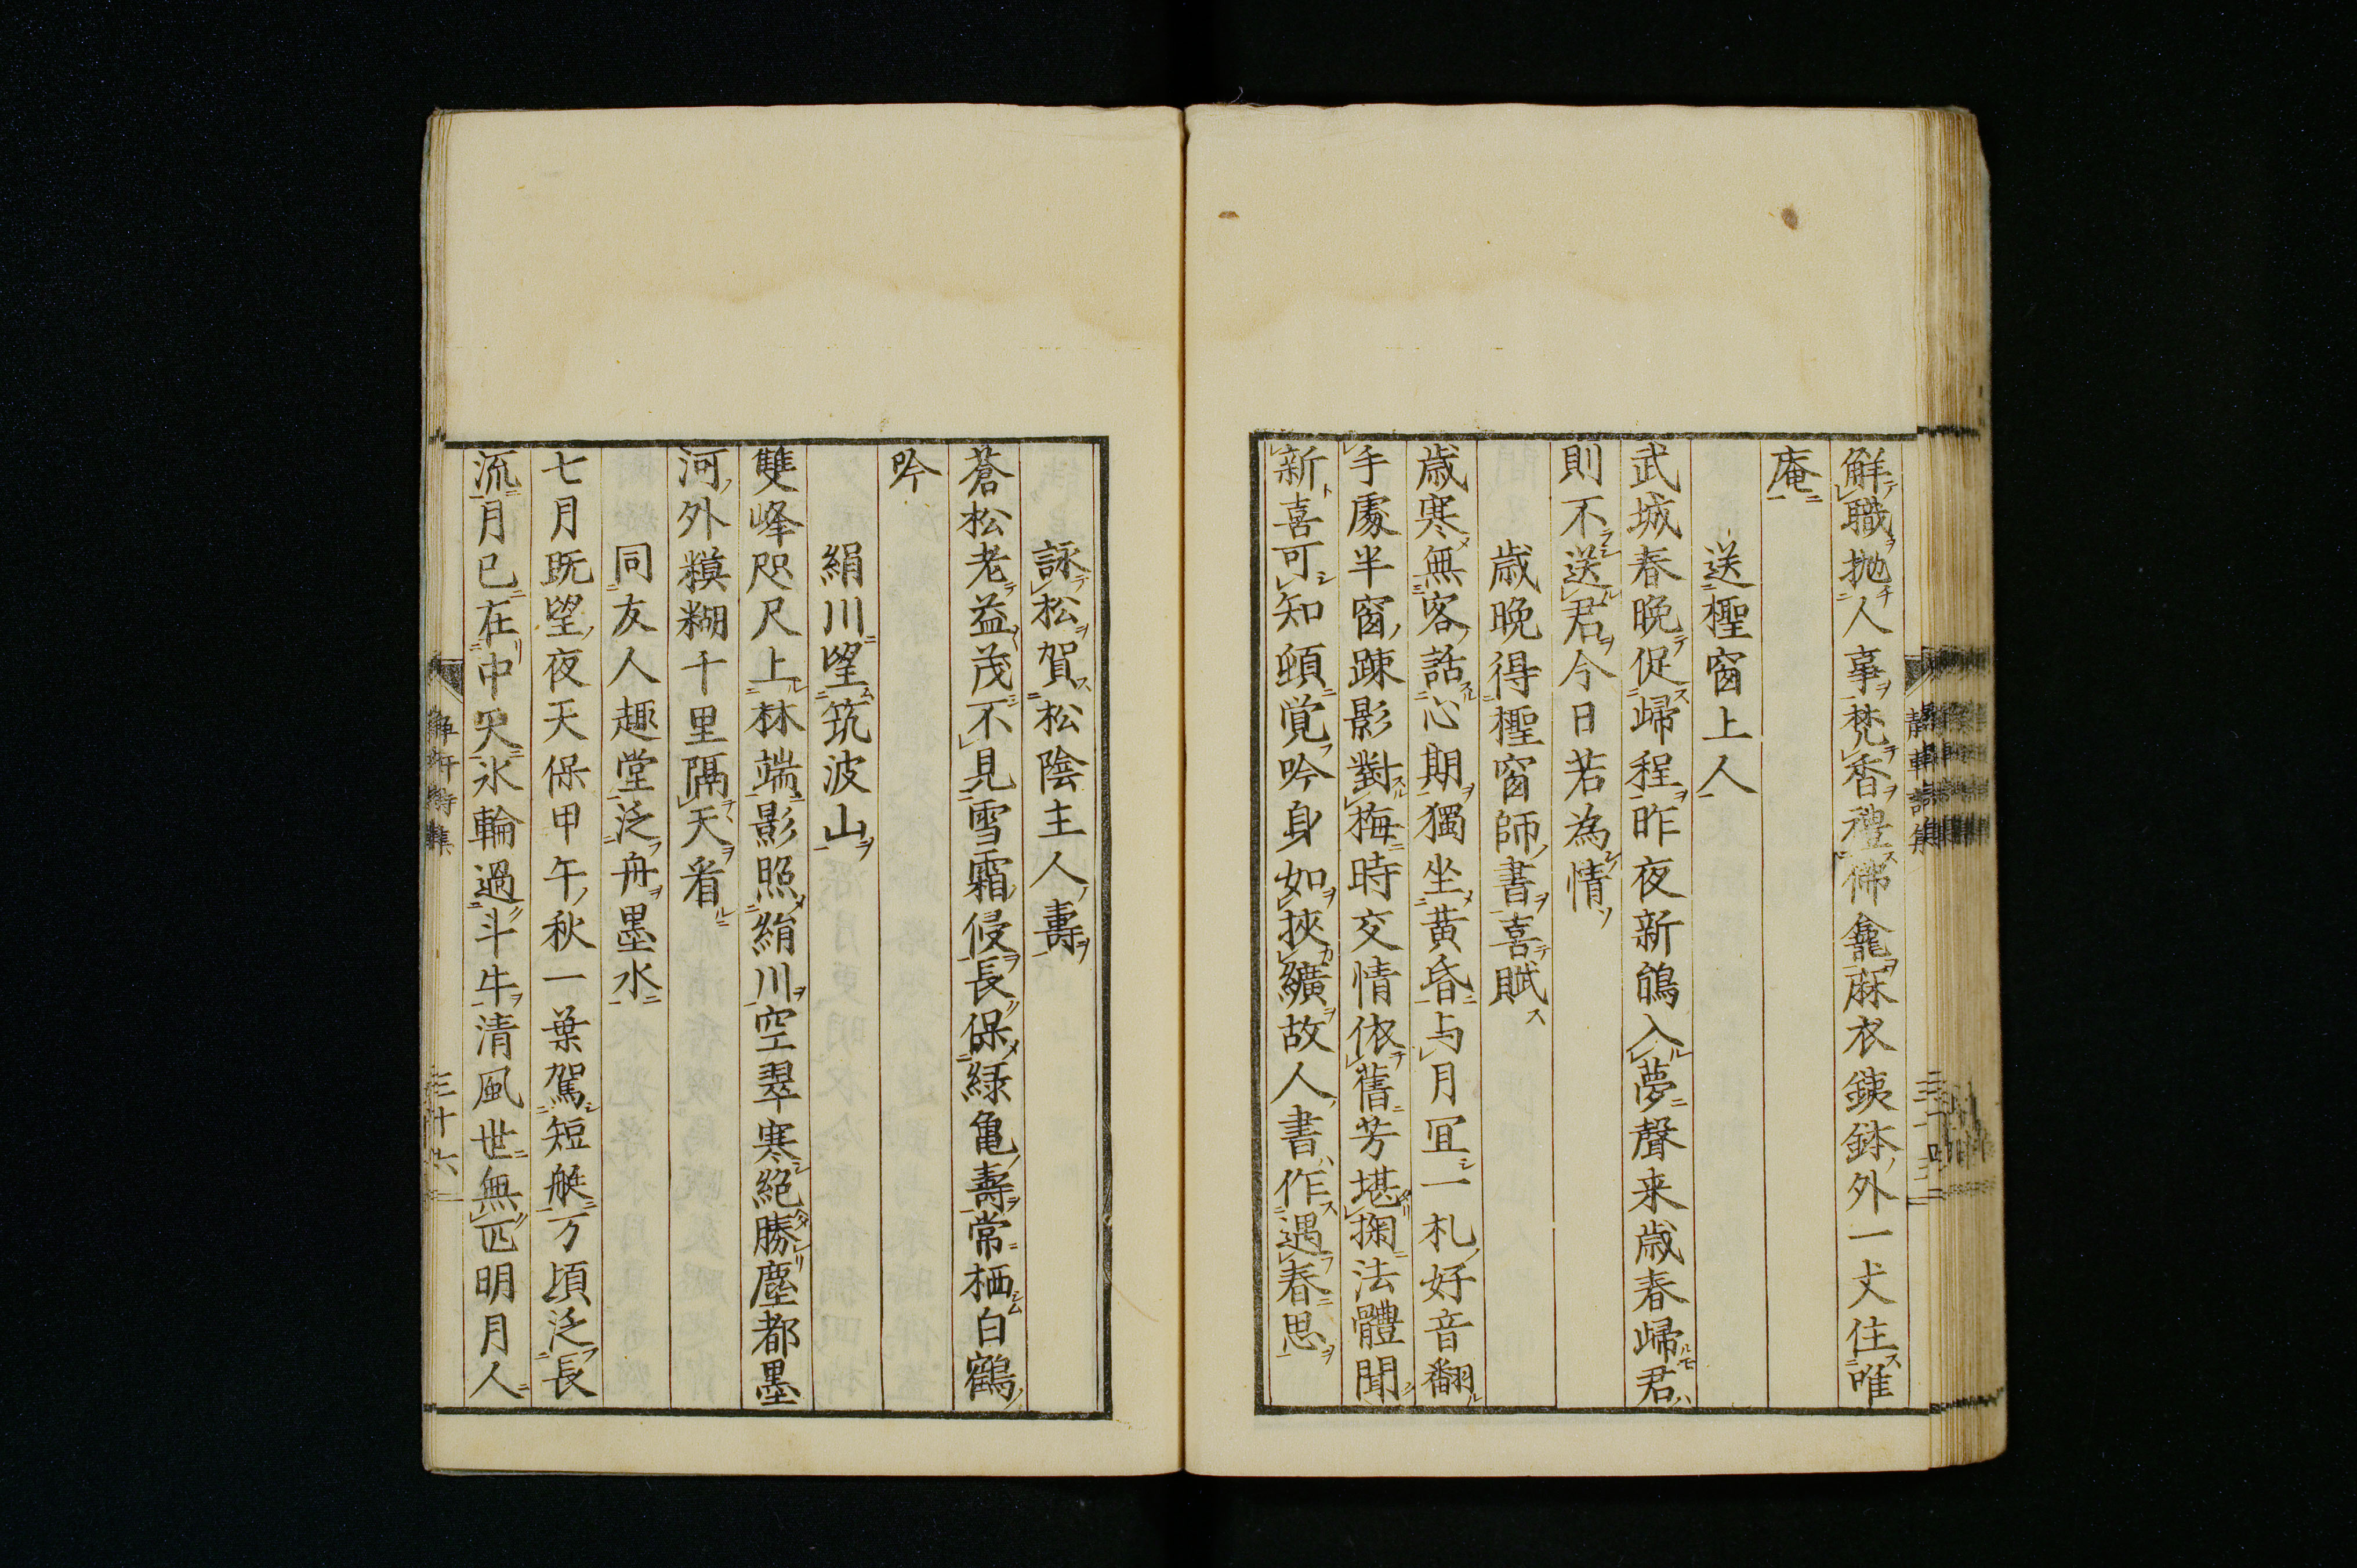 解職抛人事焚香禮佛龕麻衣銕鉢外一丈住唯
庵
送檉窗上人
武城春晩促歸程昨夜新鴿入夢聲来歳春歸君
則不送君今日若為情
歳晩得檉窗師書喜賦
歳寒無客話心期獨坐黄昏与月冝一札好音翻
手處半窗踈影對梅時交情依舊芳堪掬法體聞
新喜可知頭覚吟身如挾纊故人書作遇春思
詠松賀松陰主人壽
蒼松老益茂不見雪霜侵長保緑亀壽常栖白鶴
吟
絹川望筑波山
雙峰咫尺上林端影照絹川空翠寒絶勝塵都墨
河外糢糊千里隔天看
同友人趣堂泛舟墨水
七月既望夜天保甲午秋一葉駕短艇万頃泛長
流月已在中天氷輪過斗牛清風世無匹明月人
三十六